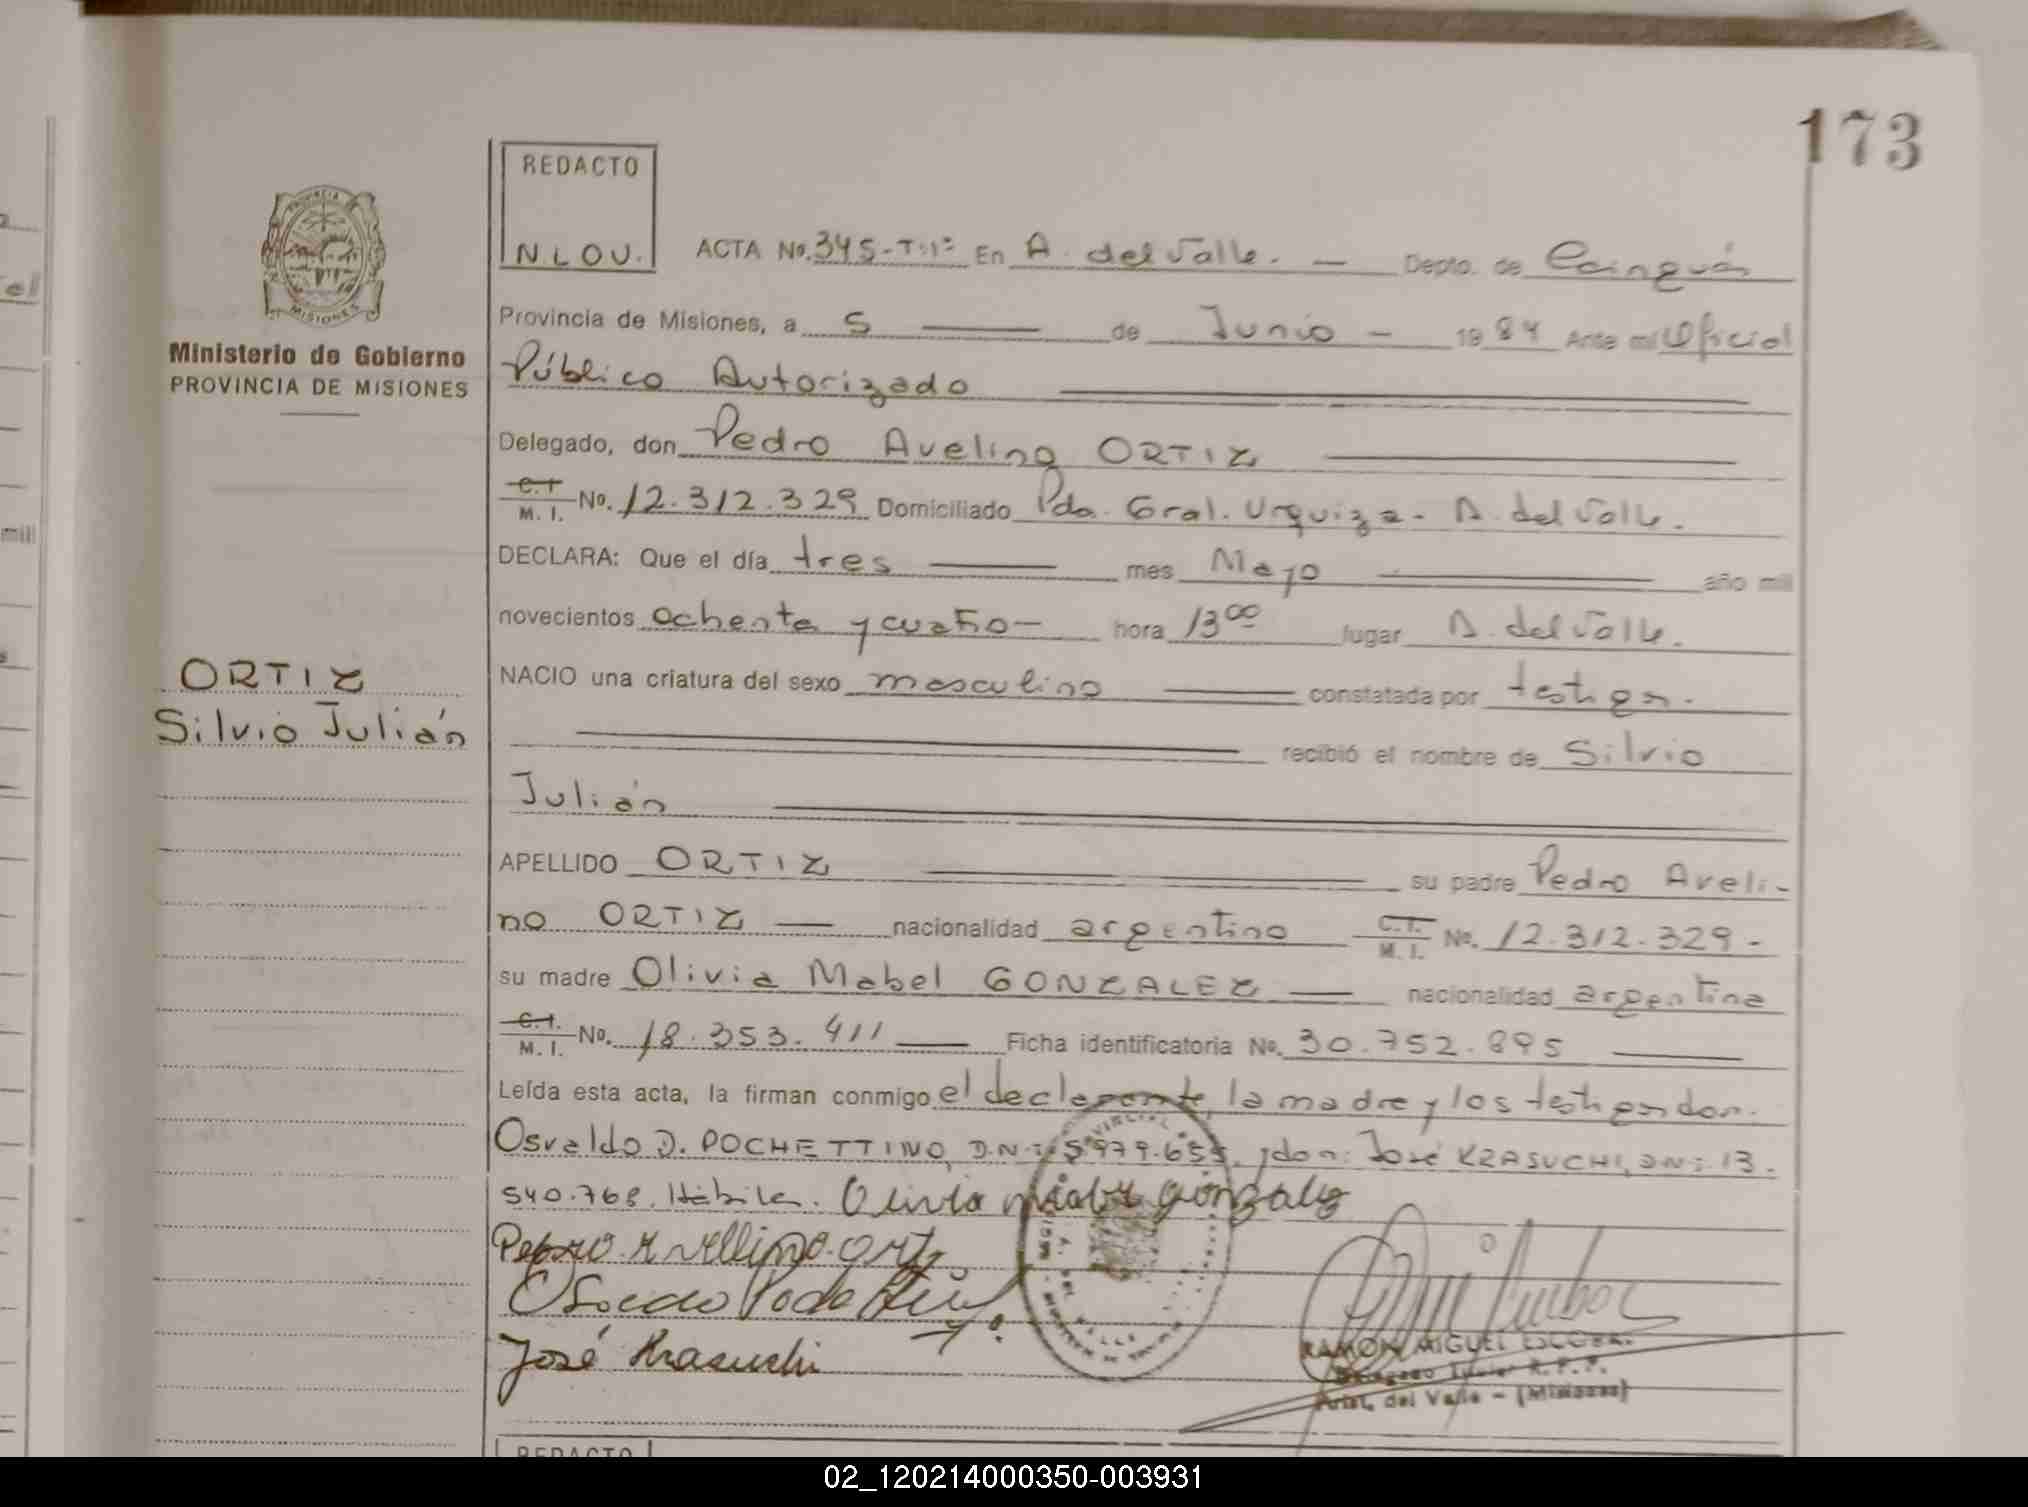 173
REDACTO
NLOU.
ACTA No. 345-T:1º En A. del Valle. — Depto. de Cainguás
Provincia de Misiones, a 5 — de Junio - 1984 Ante mi Oficial
Ministerio de Gobierno
PROVINCIA DE MISIONES
Público Autorizado
Delegado, don Pedro Avelino ORTIZ
C.I. M. I. No. 12.312.329 Domiciliado Pda. Gral. Urquiza - A. del Valle.
DECLARA: Que el día tres — mes Mayo — año mil
novecientos ochenta y cuatro — hora 13 00 lugar A. del Valle.
ORTIZ
Silvio Julián
NACIO una criatura del sexo masculino — constatada por testigos.
recibió el nombre de Silvio
Julián
APELLIDO ORTIZ — su padre Pedro Aveli-
no ORTIZ — nacionalidad argentino C.I. M. I. No. 12.312.329-
su madre Olivia Mabel GONZALEZ — nacionalidad argentina
C.I. M. I. No. 18.353.411 — Ficha identificatoria No. 30.752.895
Leída esta acta, la firman conmigo el declarante, la madre y los testigos don.
Osvaldo D. POCHETTINO, D.N.I: 5.979.655, y don: José KRASUCHI, DNI: 13.
540.768. Hábiles. Olivia mabel gonzalez
Pedro Avellino Ortiz
José Krasuchi
RAMON MIGUEL ESCOBAR
Delegado Titular R.P.P.
Arist. del Valle - (Misiones)
REDACTO
02_120214000350-003931